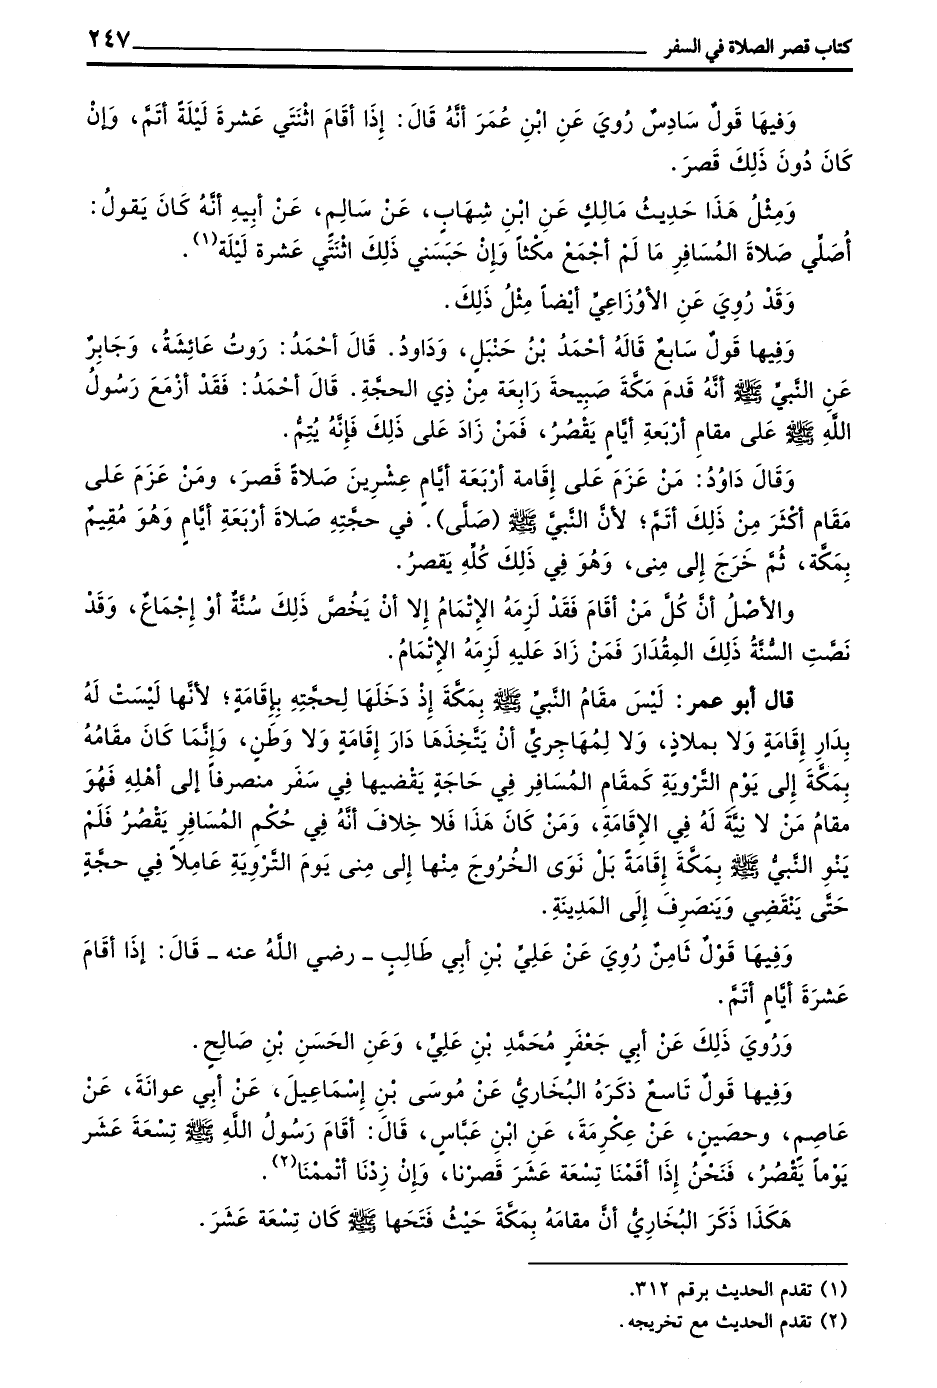 كتاب قصر الصلاة في السفر ٢٤٧
وَفيهَا قَولٌ سَادِسٌ رُويَ عَنِ ابْنِ عُمَرَ أنَّهُ قَالَ: إِذَا أقَامَ اثْنَتَي عَشرةَ لَيْلَةً أتَمَّ، وَإنْ
كَانَ دُونَ ذَلِكَ قَصرَ.
وَمِثْلُ هَذَا حَديثُ مَالِكٍ عَنِ ابْنِ شِهَابٍ، عَنْ سَالِمٍ، عَنْ أبيهِ أنَّهُ كَانَ يَقولُ:
أُصَلِّي صَلاةَ المُسَافِرِ مَا لَمْ أجْمَعْ مكْثاً وَإنْ حَبَسَني ذَلِكَ اثْنَتَّي عَشرة لَيْلَة(١).
وَقَدْ رُويَ عَنِ الأوْزَاعِيِّ أيْضاً مِثْلُ ذَلِكَ.
وَفِيها قَولٌ سَابعٌ قَالَهُ أحْمَدُ بْنُ حَنْبَلٍ، وَدَاودُ. قَالَ أحْمَدُ: رَوتُ عَائِشَةُ، وَجَابِرٌ
عَنِ النَّبيِّ ﷺ أنَّهُ قَدمَ مَكَّةَ صَبيحةَ رَابعَة مِنْ ذِي الحجَّةِ. قَالَ أحْمَدُ: فَقَدْ أزْمَعَ رَسُولُ
اللَّهِ ﷺ عَلى مقامِ أرْبَعةِ أيَّامٍ يَقْصُرُ، فَمَنْ زَادَ عَلى ذَلِكَ فَإنَّهُ يُتِمُّ.
وَقَالَ دَاوُدُ: مَنْ عَزَمَ عَلى إقَامة أرْبَعَة أيَّامٍ عِشْرِينَ صَلاةً قَصرَ، ومَنْ عَزَمَ عَلى
مَقَام أكْثَرَ مِنْ ذَلِكَ أتمَّ؛ لأنَّ النَّبيَّ ﷺ (صَلَّى). في حجَّتِهِ صَلاةَ أرْبَعَةِ أيَّامٍ وَهُوَ مُقيمٌ
بِمَكَّة، ثُمَّ خَرَجَ إلى مِنى، وَهُوَ فِي ذَلِكَ كُلِّهِ يَقصرُ.
والأصْلُ أنَّ كُلَّ مَنْ أقَامَ فَقَدْ لَزِمَهُ الإتْمَامُ إلا أنْ يَخُصَّ ذَلِكَ سُنَّةٌ أوْ إجْمَاعٌ، وَقَدْ
نَصَّتِ السُّنَّةُ ذَلِكَ المِقْدَارَ فَمَنْ زَادَ عَليهِ لَزِمَهُ الإتْمَامُ.
قال أبو عمر: لَيْسَ مقَامُ النَّبيِّ ﷺ بِمَكَّةَ إذْ دَخَلَهَا لِحجَّتِهِ بِإقَامَةٍ؛ لأنَّها لَيْسَتْ لَهُ
بِدَارِ إقَامَةٍ وَلا بملاذٍ، وَلا لِمُهَاجِريٍّ أنْ يَتَّخِذَهَا دَارَ إقَامَةٍ وَلا وَطَنٍ، وَإنَّمَا كَانَ مقَامُهُ
بِمَكَّةَ إلى يَوْمِ التَّرْويَةِ كَمقَامِ المُسَافرِ فِي حَاجَةٍ يَقْضيها فِي سَفَر منصرفاً إلى أهْلِهِ فَهُوَ
مقامُ مَنْ لا نِيَّةَ لَهُ فِي الإقَامَةِ، وَمَنْ كَانَ هَذَا فَلا خِلافَ أنَّهُ فِي حُكْمِ المُسَافرِ يَقْصُرُ فَلَمْ
يَنْوِ النَّبيُّ ﷺ بِمَكَّةَ إقَامَةً بَلْ نَوَى الخُروجَ مِنْها إلى مِنى يَومَ التَّرْويَةِ عَامِلاً فِي حجَّةٍ
حَتَّى يَنْقَضِي وَيَنصَرِفَ إلَى المَدينَةِ.
وَفِيهَا قَوْلٌ ثَامِنٌ رُويَ عَنْ عَليِّ بْنِ أبي طَالِبٍ ـ رضي اللَّهُ عنه ـ قَالَ: إذَا أقَامَ
عَشرَةَ أيَّامٍ أتَمَّ.
وَرُويَ ذَلِكَ عَنْ أبي جَعْفَرٍ مُحَمَّدِ بْنِ عَليٍّ، وَعَنِ الحَسَنِ بْنِ صَالِحٍ.
وَفِيها قَولٌ تَاسعٌ ذكَرَهُ البُخَاريُّ عَنْ مُوسَى بْنِ إسْمَاعيلَ، عَنْ أبي عوانَةَ، عَنْ
عَاصِمٍ، وحصَينٍ، عَنْ عِكْرِمَةَ، عَنِ ابْنِ عَبَّاسٍ، قَالَ: أقَامَ رَسُولُ اللَّهِ ﷺ تِسْعَةَ عَشَر
يَوْماً يَقْصُرُ، فَنَحْنُ إذَا أقَمْنَا تِسْعَة عَشَرَ قَصرْنا، وَإنْ زِدْنَا أتْممْنَا(٢).
هَكَذَا ذَكَرَ البُخَاريُّ أنَّ مقامَهُ بِمَكَّةَ حَيْثُ فَتَحَها ﷺ كَان تِسْعَة عَشَرَ.
(١) تقدم الحديث برقم ٣١٢.
(٢) تقدم الحديث مع تخريجه.